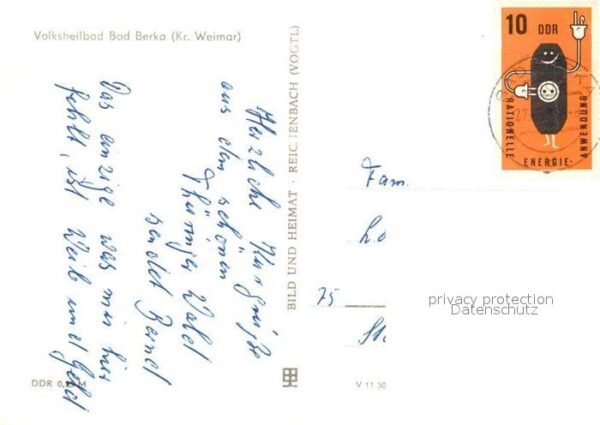 Volksheilbad Bad Berka (Kr. Weimar)
Herzliche Kurgrüße
aus dem schönen
Thüringer Wald
sendet Bernd
Das einzige was mir hier
fehlt, ist Weib und Geld
DDR 0,25 M
BILD UND HEIMAT · REICHENBACH (VOGTL)
V 11 30
10 DDR
RATIONELLE ENERGIE-ANWENDUNG
Fam.
75
privacy protection
Datenschutz